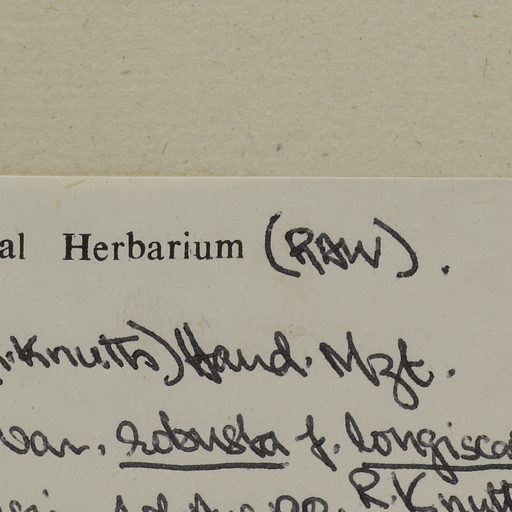 al Herbarium (RAW).
Knutts) Hand. Mzt.
var. robusta f. longisca
R. Knutt